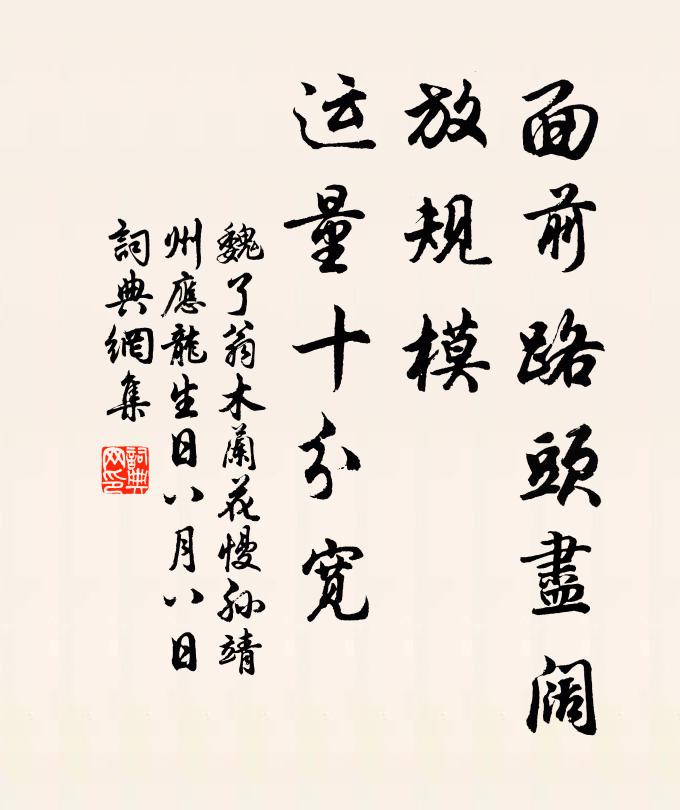 面前路頭盡闊
放規模
运量十分寬
魏了翁木蘭花慢孙靖
州應龍生日八月八日
詞典網集
詞典网印